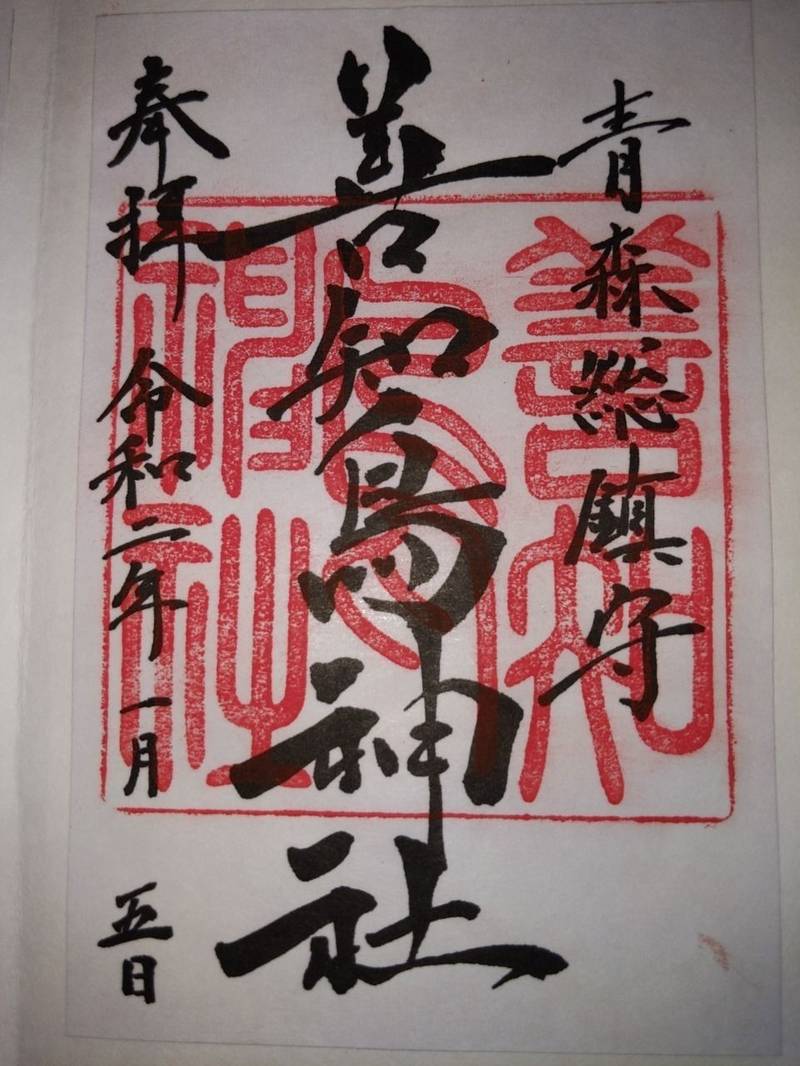 青森総鎮守
善知鳥神社
奉拝 令和二年 一月 五日
善知
鳥
神社